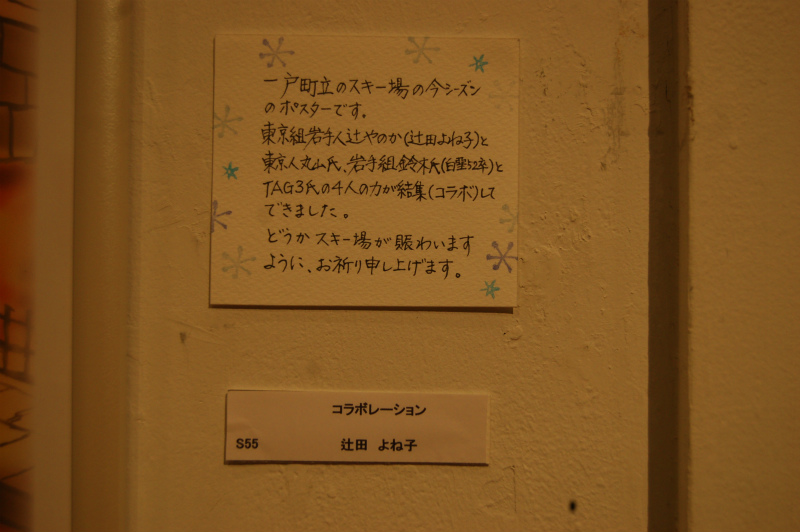 一戸町立のスキー場の今シーズン
のポスターです。
東京組岩手人辻やのか(辻田よね子)と
東京人丸山氏、岩手組鈴木氏(白堊52卒)と
TAG3氏の4人の力が結集(コラボ)して
できました。
どうかスキー場が賑わいます
ように、お祈り申し上げます。
コラボレーション
S55 辻田 よね子